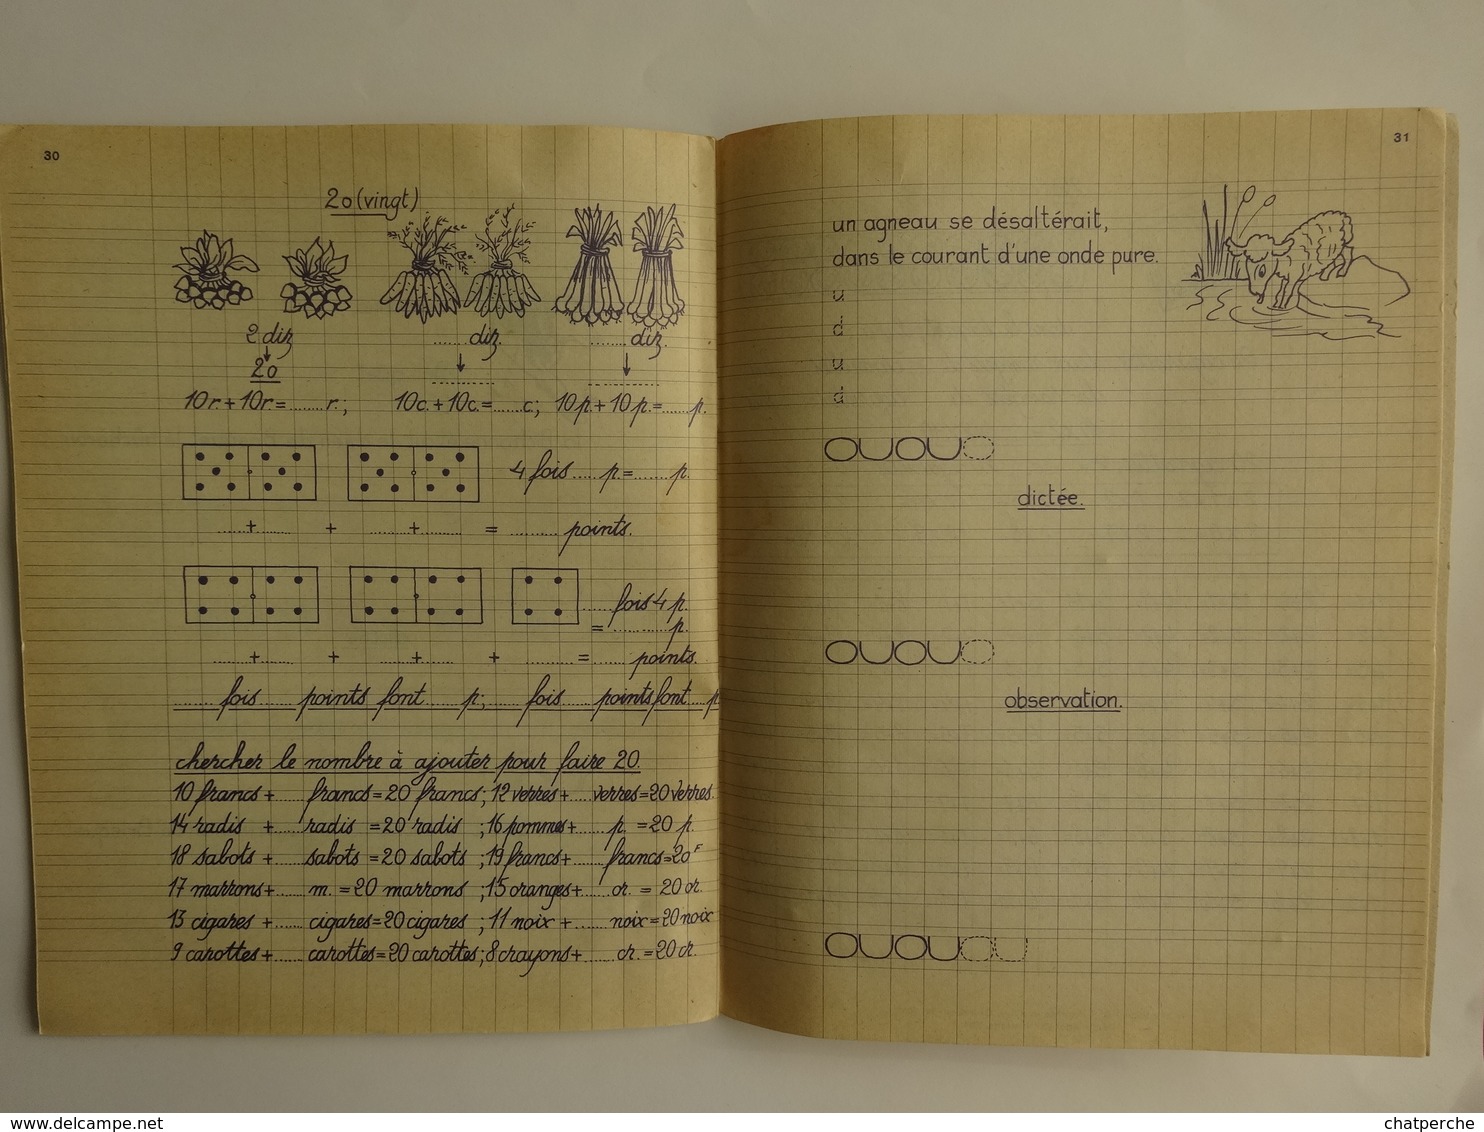 30
20 (vingt)
2 diz ........ diz. ........ diz.
20
10r. + 10r. = ........ r. ; 10c. + 10c. = ........ c; 10p. + 10p. = ........ p.
4 fois ...... p. = ........ p.
........ + ........ + ........ + ........ = ........... points.
....... fois 4 p.
= ............. p.
........ + ........ + ........ + ........ + .......... = ....... points.
........ fois ...... points font ...... p; ...... fois ...... points font .... p
chercher le nombre à ajouter pour faire 20.
10 francs + ...... francs = 20 francs ; 12 verres + ..... verres = 20 verres.
14 radis + ...... radis = 20 radis ; 16 pommes + ...... p. = 20 p.
18 sabots + ...... sabots = 20 sabots ; 19 francs + ....... francs = 20F
17 marrons + ...... m. = 20 marrons ; 15 oranges + ...... or. = 20 or.
13 cigares + ...... cigares = 20 cigares ; 11 noix + ....... noix = 20 noix
9 carottes + ...... carottes = 20 carottes ; 8 crayons + ...... cr. = 20 cr.
31
un agneau se désaltérait,
dans le courant d'une onde pure.
u
d
u
d
dictée.
observation.
www.delcampe.net
chatperche